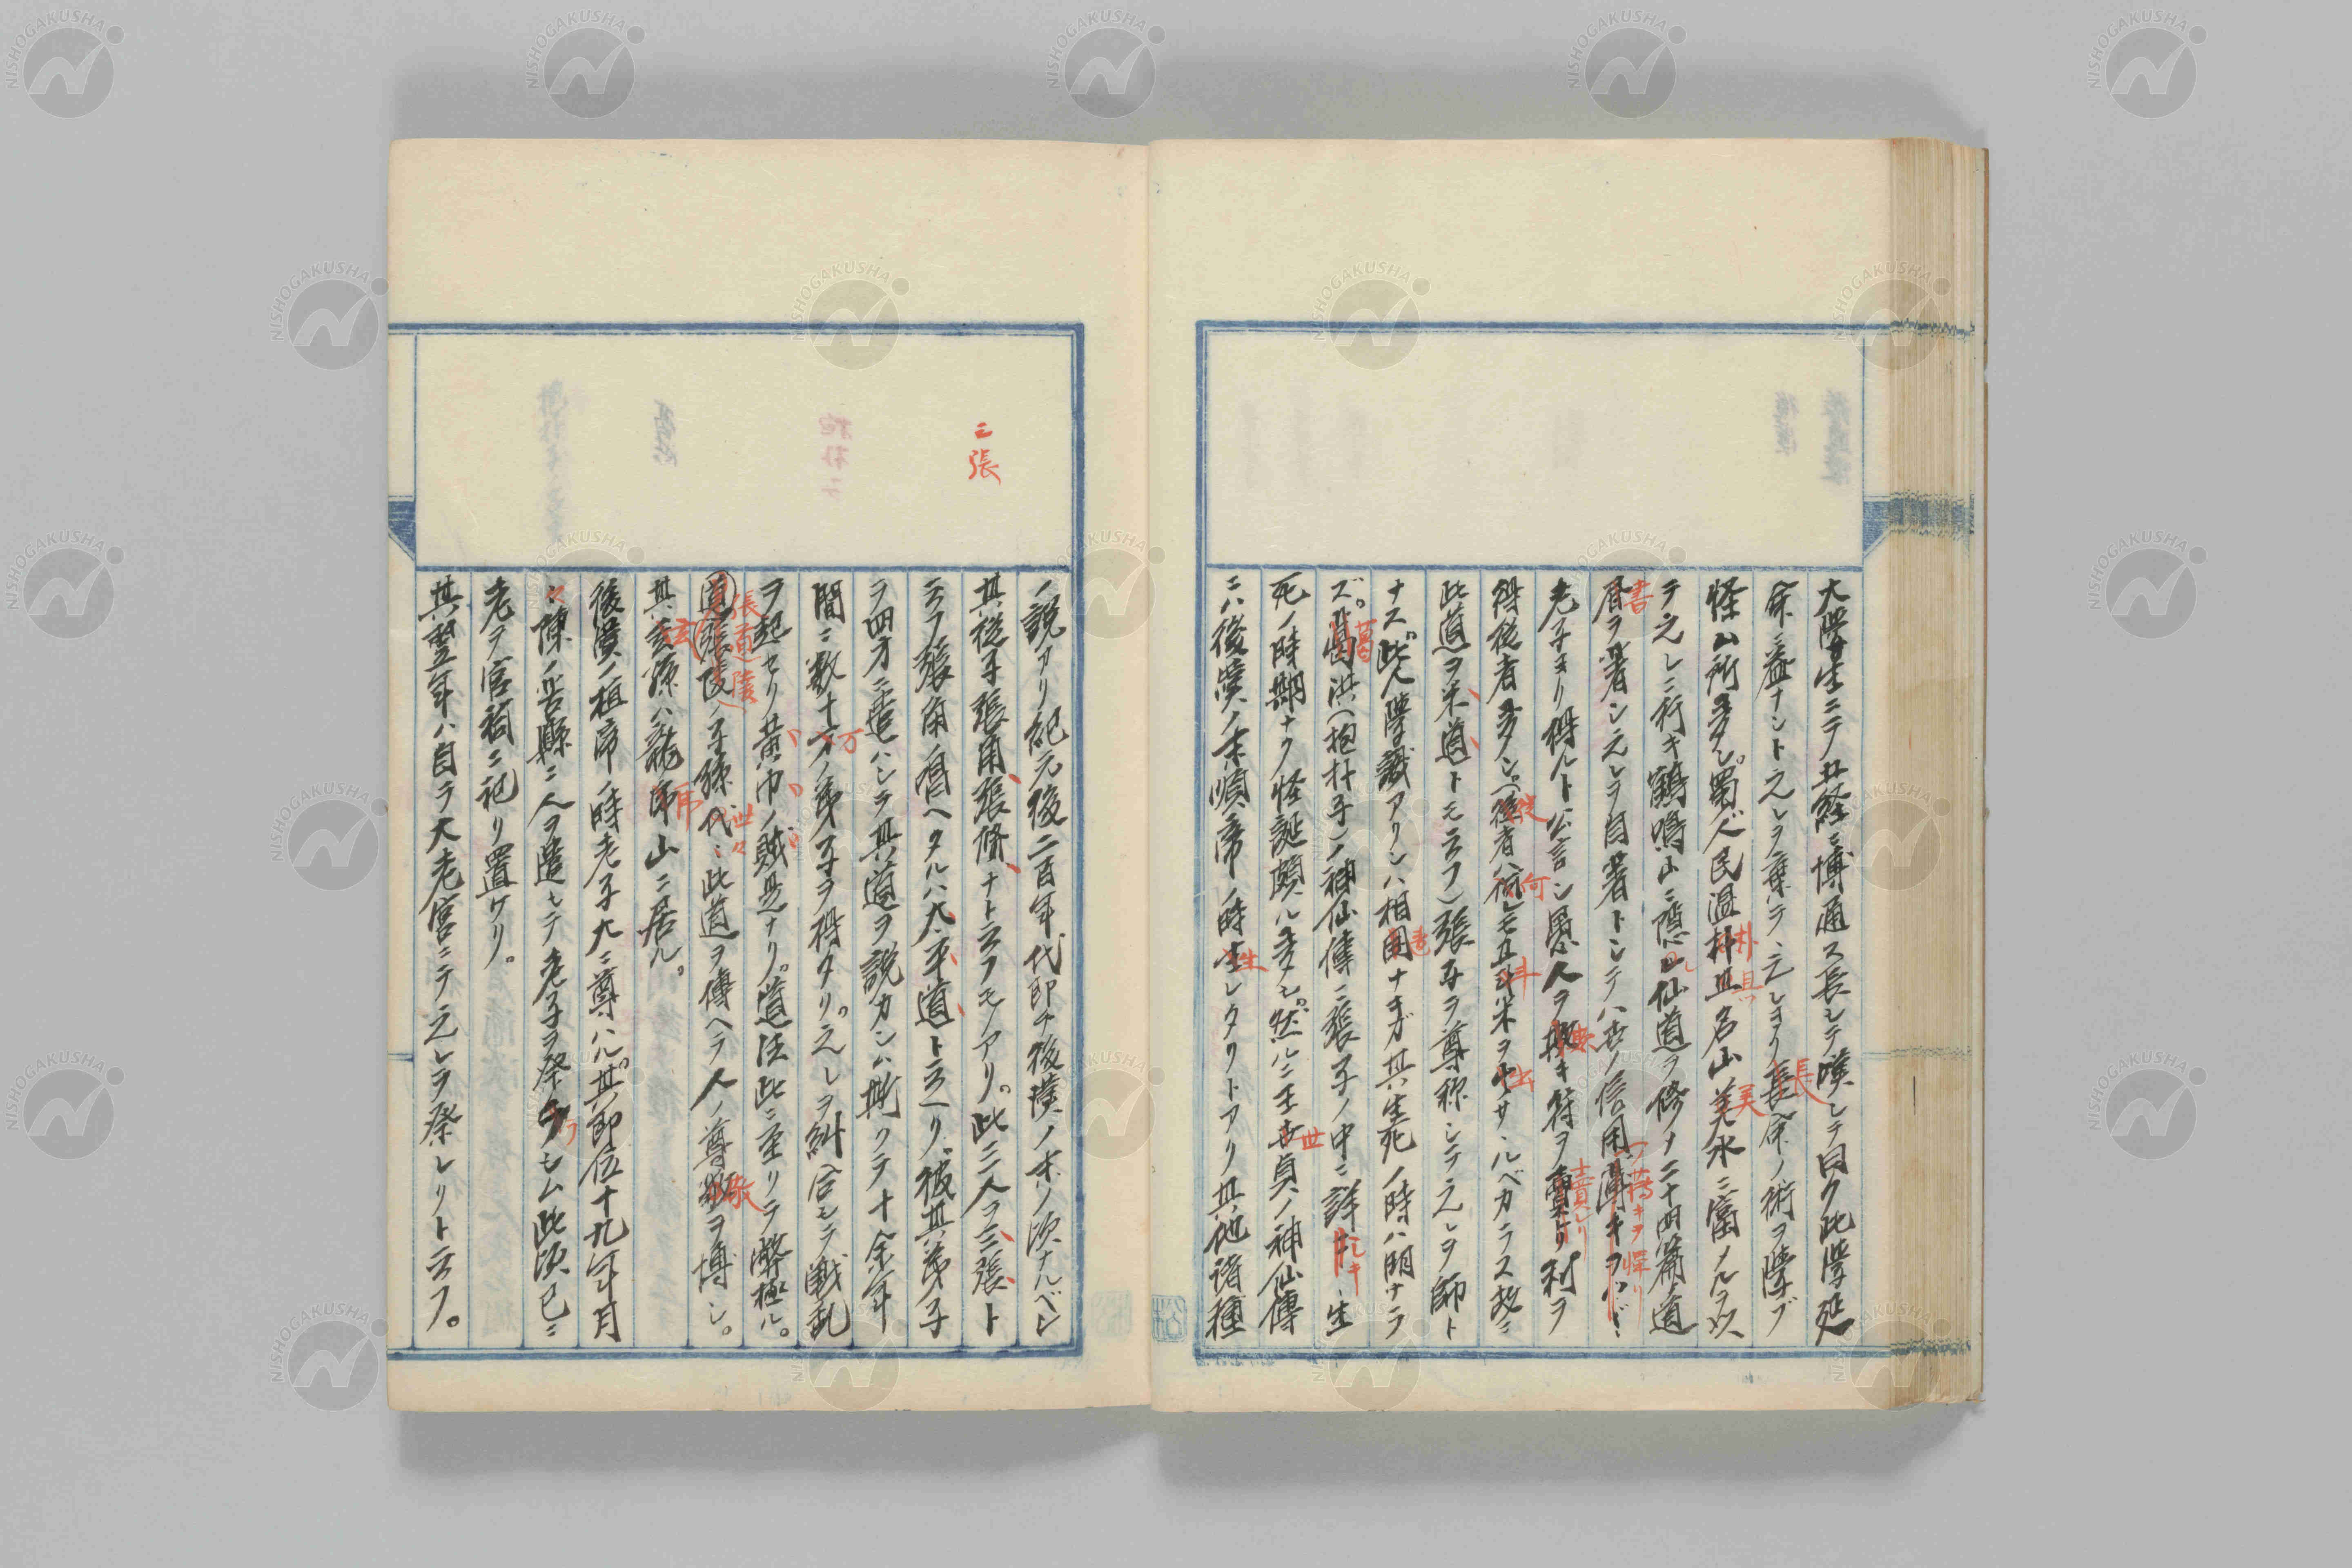 大學生ニテ五経ニ博通ス長シテ嘆シテ曰ク此學延
命ニ益ナシト之レヲ棄ハテ之レヨリ長命ノ術ヲ學ブ
怪山所多シ。蜀人民温朴且名山美水ニ富メルヲ以
テ之レニ行キ鶴鳴山ニ隠レ仙道ヲ修メ二十四篇ノ道
書ヲ著シ之レヲ自著トシテハ世ノ信用薄キヲ憚リ
老子ヨリ得ルト公言シ愚人ヲ欺キ符ヲ賣リ利ヲ
得従者多シ。従者ハ何レモ五斗米ヲ出サヽルベカラス故ニ
此道ヲ米道トモ云フ）張子ヲ尊称シテ之レヲ師ト
ナス。此人學識アリシハ相違ナキガ其生死ノ時ハ明ナラ
ズ。葛洪（抱朴子）ノ神仙傳ニ張子ノ中ニ詳
死ノ時期ナク怪誕頗ル多シ。然ルニ王世貞ノ神仙傳
ニハ後漢ノ末順帝ノ時生レタリトアリ其他諸種
三張
ノ説アリ紀元後二百年代即チ後漢ノ末ノ頃ナルベシ
其従子張角、張脩、ナト云フモアリ。此三人ヲ三張ト
云フ張角ノ唱ヘタルハ太平道ト云ヘリ。彼其弟子
ヲ四方ニ遣ハシテ其道ヲ説カシム斯クテ十余年
間ニ数十万ノ弟子ヲ得タリ。之レヲ糾合シテ戦乱
ヲ起セリ黄巾ノ賊是ナリ。道法此ニ至リテ弊極ル。
張道陵ノ子孫世々此道ヲ傳ヘテ人ノ尊敬ヲ博シ。
其玄孫ハ龍虎山ニ居ル。
後漢ノ桓帝ノ時老子大ニ尊ハル。其即位十九年月
ニ陳ノ苦縣ニ人ヲ遣シテ老子ヲ祭ラシム此頃已ニ
老ヲ宮祠ニ祀リ置ケリ。
其翌年ハ自ラ大老宮ニテ之レヲ祭レリト云フ。
NISHOGAKUSHA